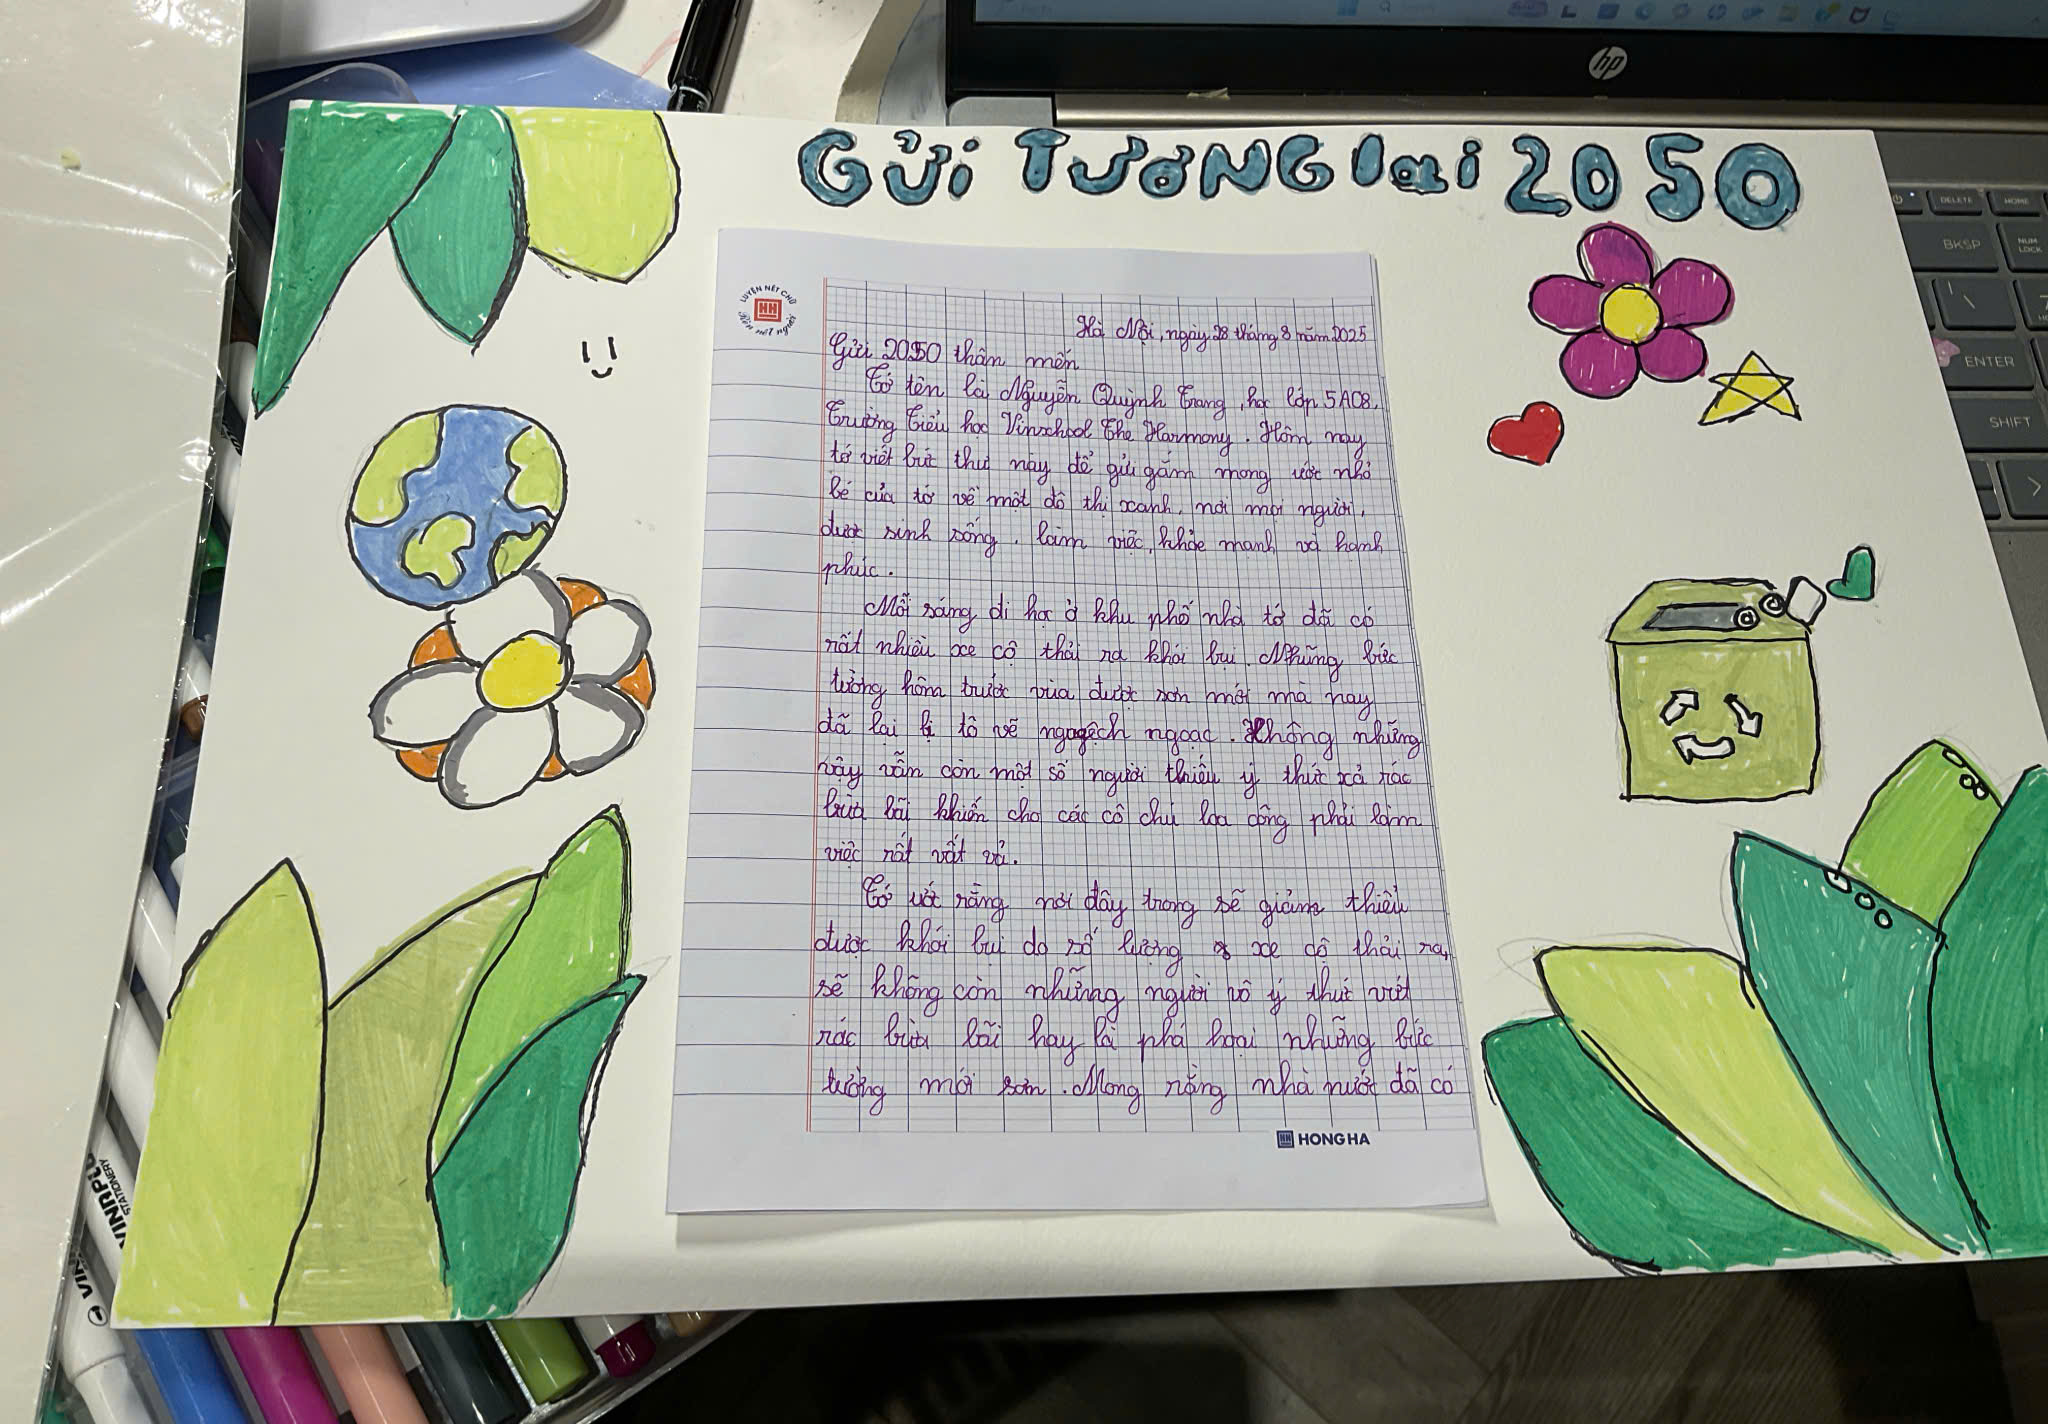 hp
DELETE
HOME
BKSP
NUM
LOCK
ENTER
SHIFT
GỬI TƯƠNG lai 2050
LUYỆN NÉT CHỮ
Rèn nết người
HH
Hà Nội, ngày 28 tháng 8 năm 2025
Gửi 2050 thân mến
Tớ tên là Nguyễn Quỳnh Trang, học lớp 5A08,
Trường Tiểu học Vinschool The Harmony. Hôm nay
tớ viết bức thư này để gửi gắm mong ước nhỏ
bé của tớ về một đô thị xanh, nơi mọi người,
được sinh sống, làm việc, khỏe mạnh và hạnh
phúc.
Mỗi sáng đi học ở khu phố nhà tớ đã có
rất nhiều xe cộ thải ra khói bụi. Những bức
tường hôm trước vừa được sơn mới mà nay
đã lại bị tô vẽ nguệch ngoạc. Không những
vậy vẫn còn một số người thiếu ý thức xả rác
bừa bãi khiến cho các cô chú lao công phải làm
việc rất vất vả.
Tớ ước rằng nơi đây trong sẽ giảm thiểu
được khói bụi do số lượng xe cộ thải ra,
sẽ không còn những người vô ý thức vứt
rác bừa bãi hay là phá hoại những bức
tường mới sơn. Mong rằng nhà nước đã có
HH HONG HA
VINRPLE
STATIONERY